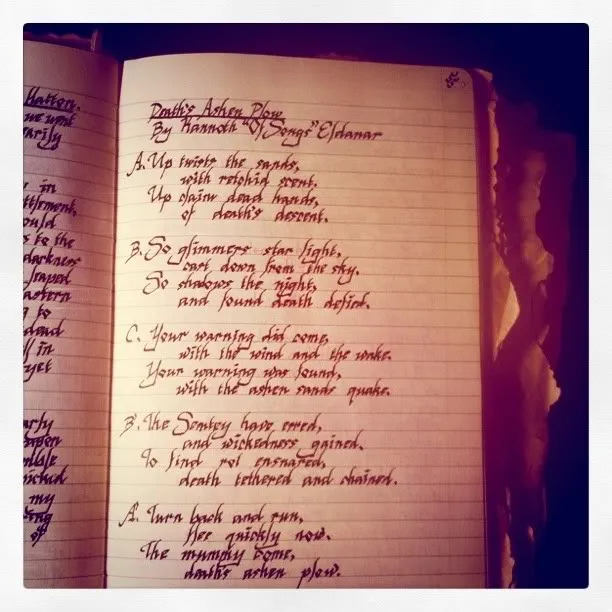 we went
arily
in
ttlement,
ould
s to the
darkness
astern
g to
dead
ll in
yet
arly
my
ing
of
Death's Ashen Plow
By Hannoth "Of Songs" Eldanar
A. Up twists the sands,
with retchid scent.
Up claim dead hands,
of death's descent.
B. So glimmers star light,
cast down from the sky.
So shadows the night,
and found death defied.
C. Your warning did come,
with the wind and the wake.
Your warning was found,
with the ashen sands quake.
B'. The Sentry have erred,
and wickedness gained.
To find rot ensnared,
death tethered and chained.
A'. Turn back and run,
flee quickly now.
The mummy come,
death's ashen plow.